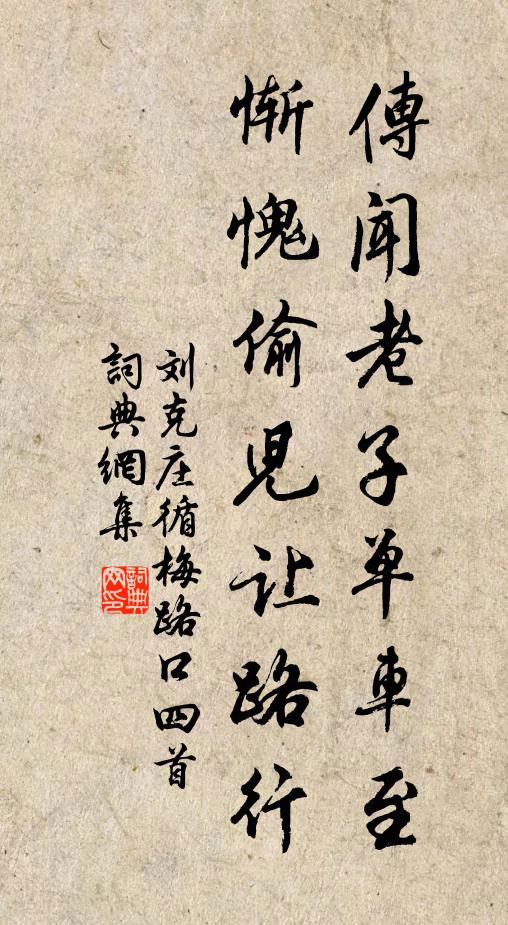 傳聞老子单車至
惭愧偷兒让路行
刘克庄循梅路口四首
詞典網集
詞典网印